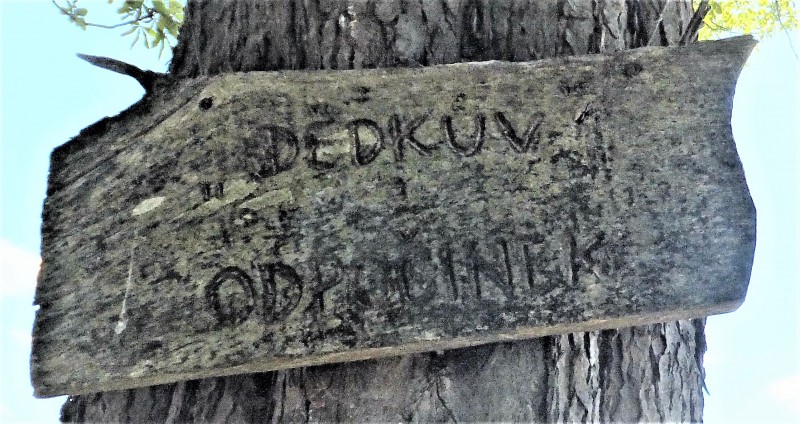 DĚDKŮV
ODPOČINEK